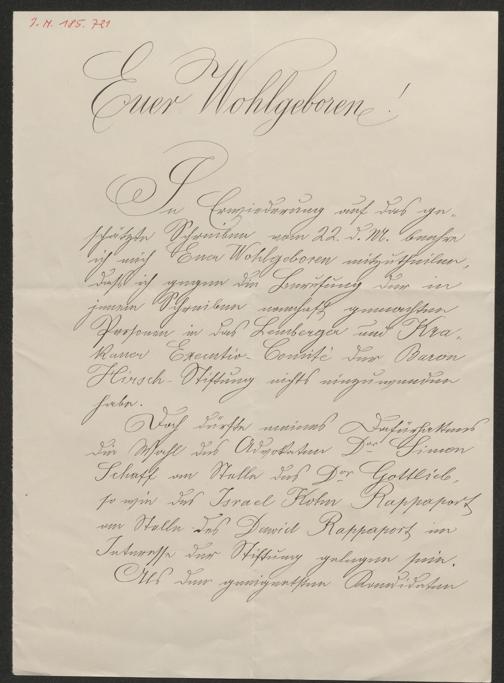 I. N. 185.721
Euer Wohlgeboren!
In Erwiederung auf das ge-
schätzte Schreiben vom 22. d. M. beehre
ich mich Euer Wohlgeboren mitzutheilen,
daß ich gegen die Berufung der in
jenem Schreiben namhaft gemachten
Personen in das Lemberger und Kra-
kauer Executiv-Comité der Baron
Hirsch-Stiftung nichts einzuwenden
habe.
Doch dürfte meines Dafürhaltens
die Wahl des Advokaten Dor Simon
Schaff an Stelle des Dor Gottlieb,
so wie des Israel Kohn Rappaport
an Stelle des Dawid Rappaport im
Interesse der Stiftung gelegen sein.
Als den geeignetsten Kandidaten